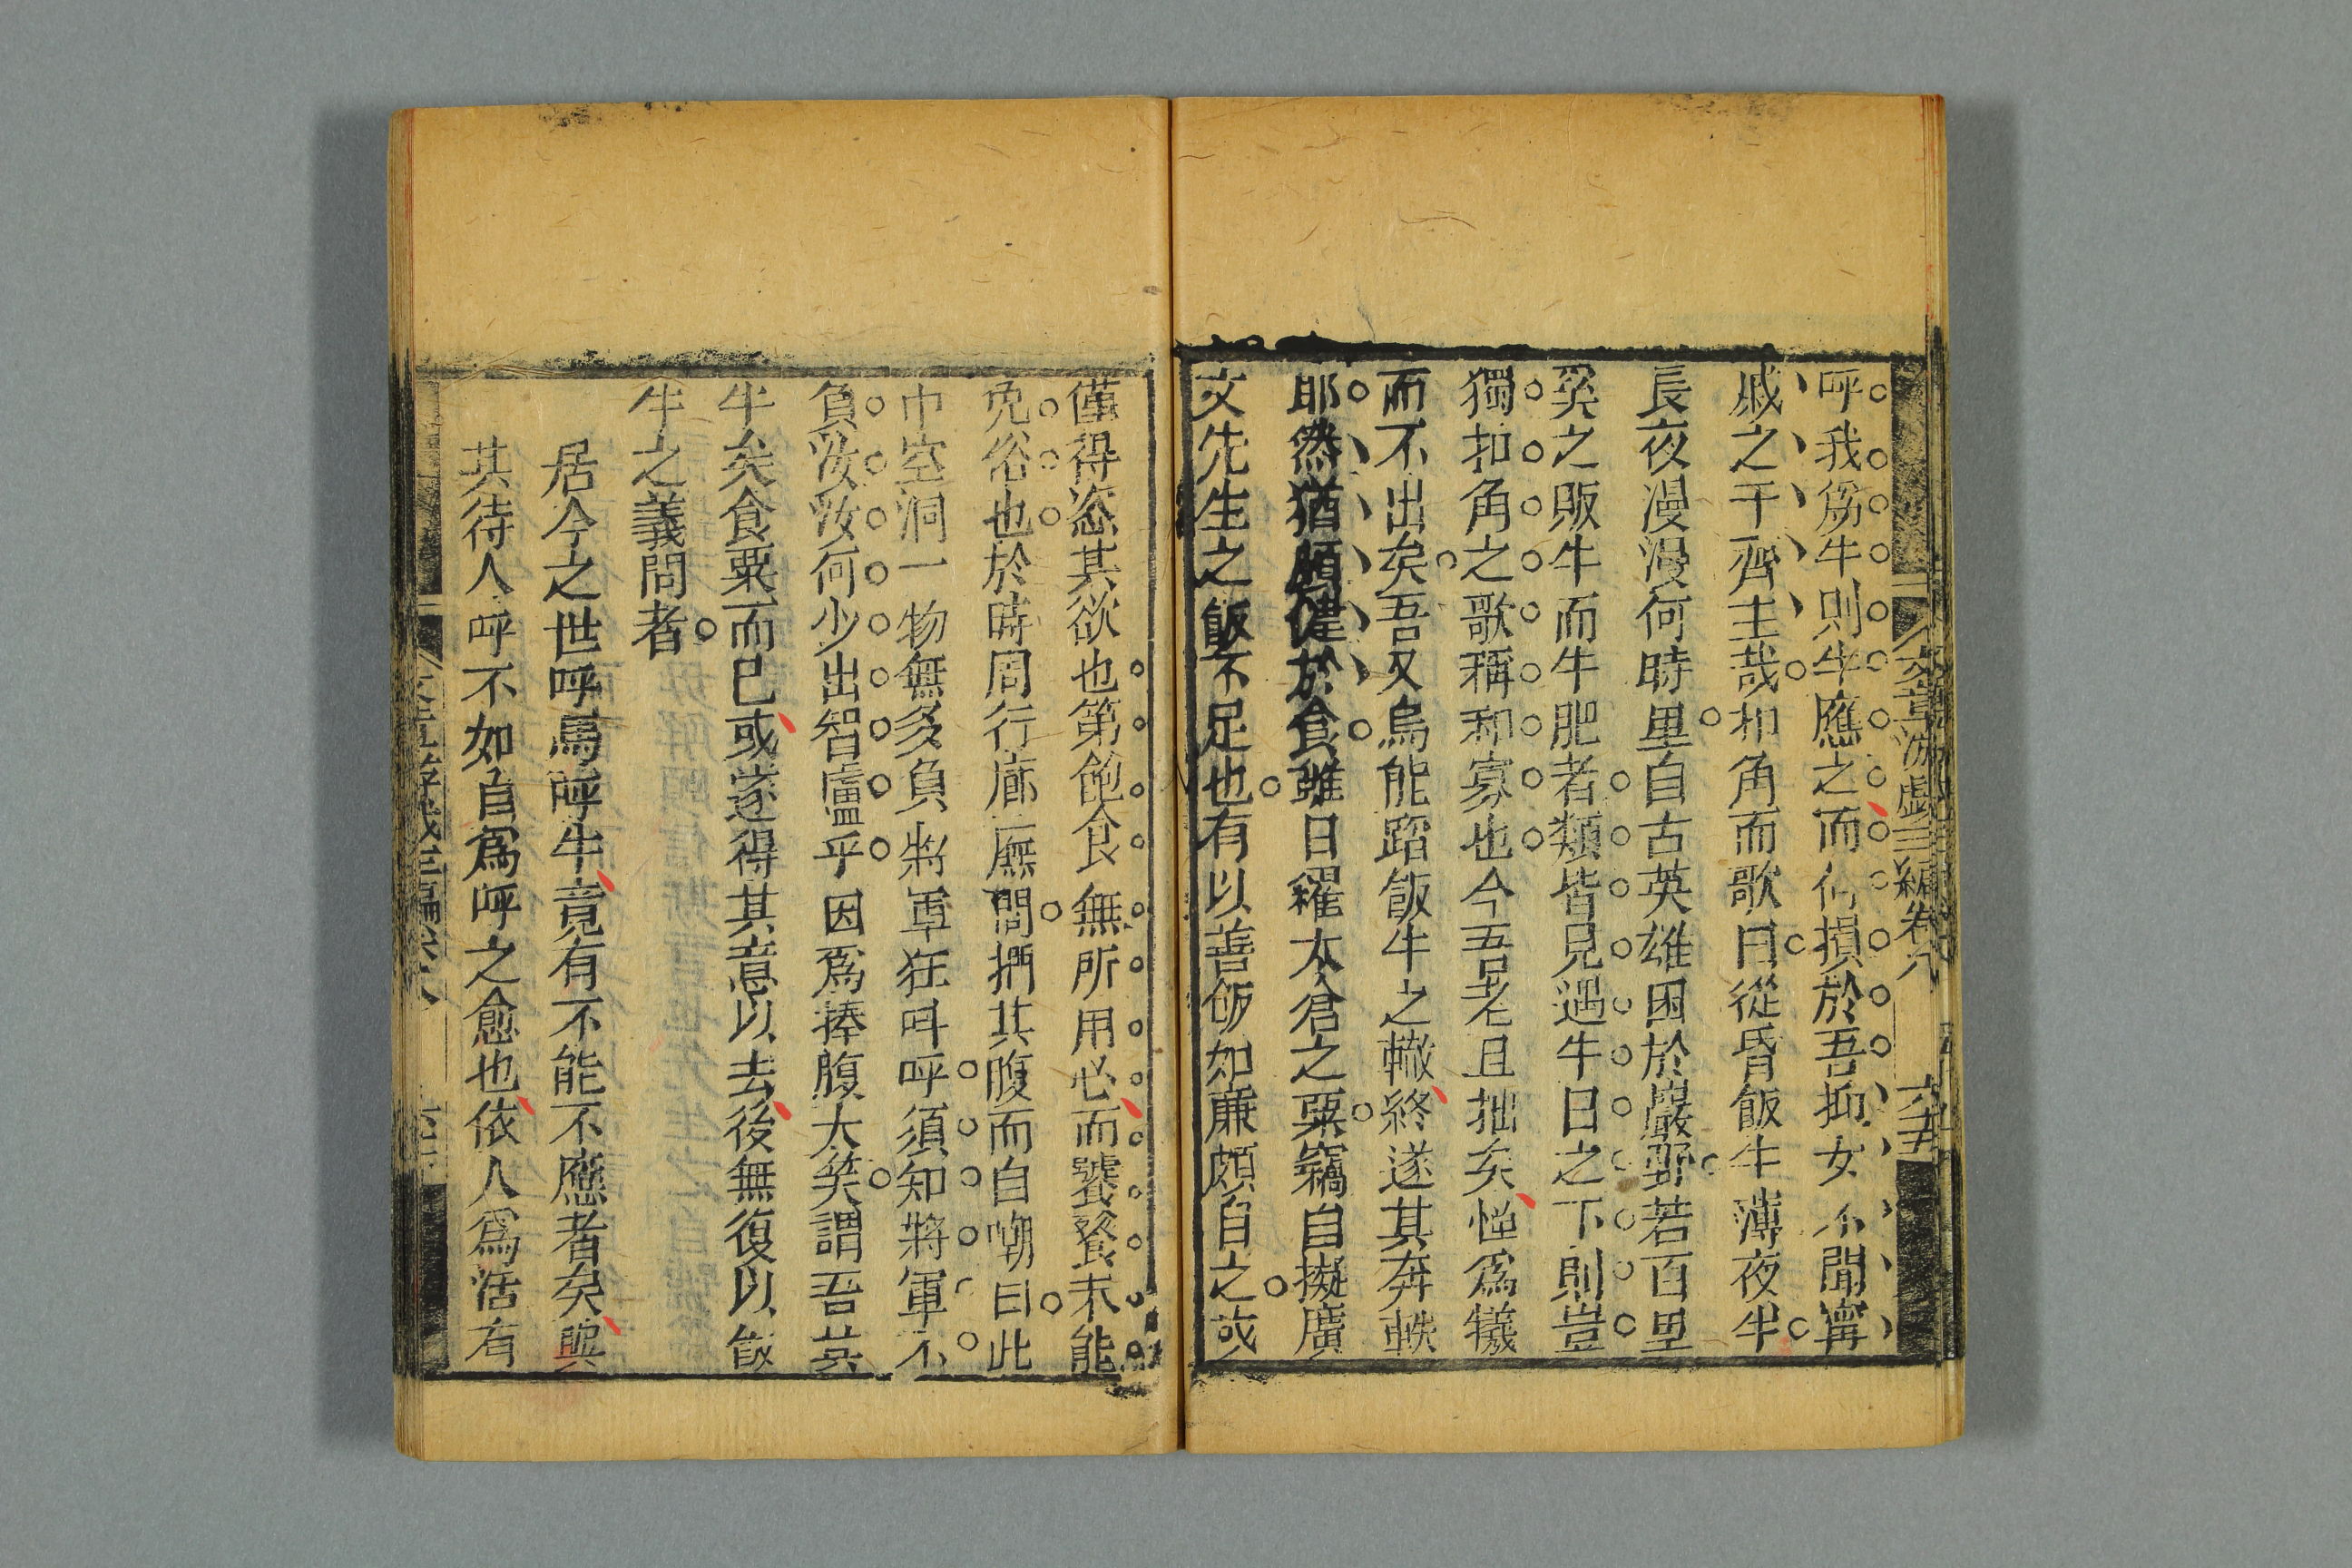 文章游戲三編卷八
六五
呼我為牛則牛應之而何損於吾抑女不聞甯
戚之干齊主哉扣角而歌曰從昏飯牛薄夜半
長夜漫漫何時旦自古英雄困於巖野若百里
奚之販牛而牛肥者類皆見遇牛口之下則豈
獨扣角之歌稱和寡也今吾老且拙矣恠為犧
而不出矣吾又烏能蹈飯牛之轍終遂其奔軼
耶然猶頗健於食雖日糴太倉之粟竊自擬廣
文先生之飯不足也有以善飯如廉頗目之或
僅得恣其欲也第飽食無所用心而饕餮未能
免俗也於時周行廊廡間捫其腹而自嘲曰此
中空洞一物無多負將軍狂叫呼須知將軍不
負汝汝何少出智盧乎因為捧腹大笑謂吾其
牛矣食粟而已或遂得其意以去後無復以飯
牛之義問者
居今之世呼馬呼牛竟有不能不應者矣與
其待人呼不如自為呼之愈也依人為活有
文章游戲三編卷八